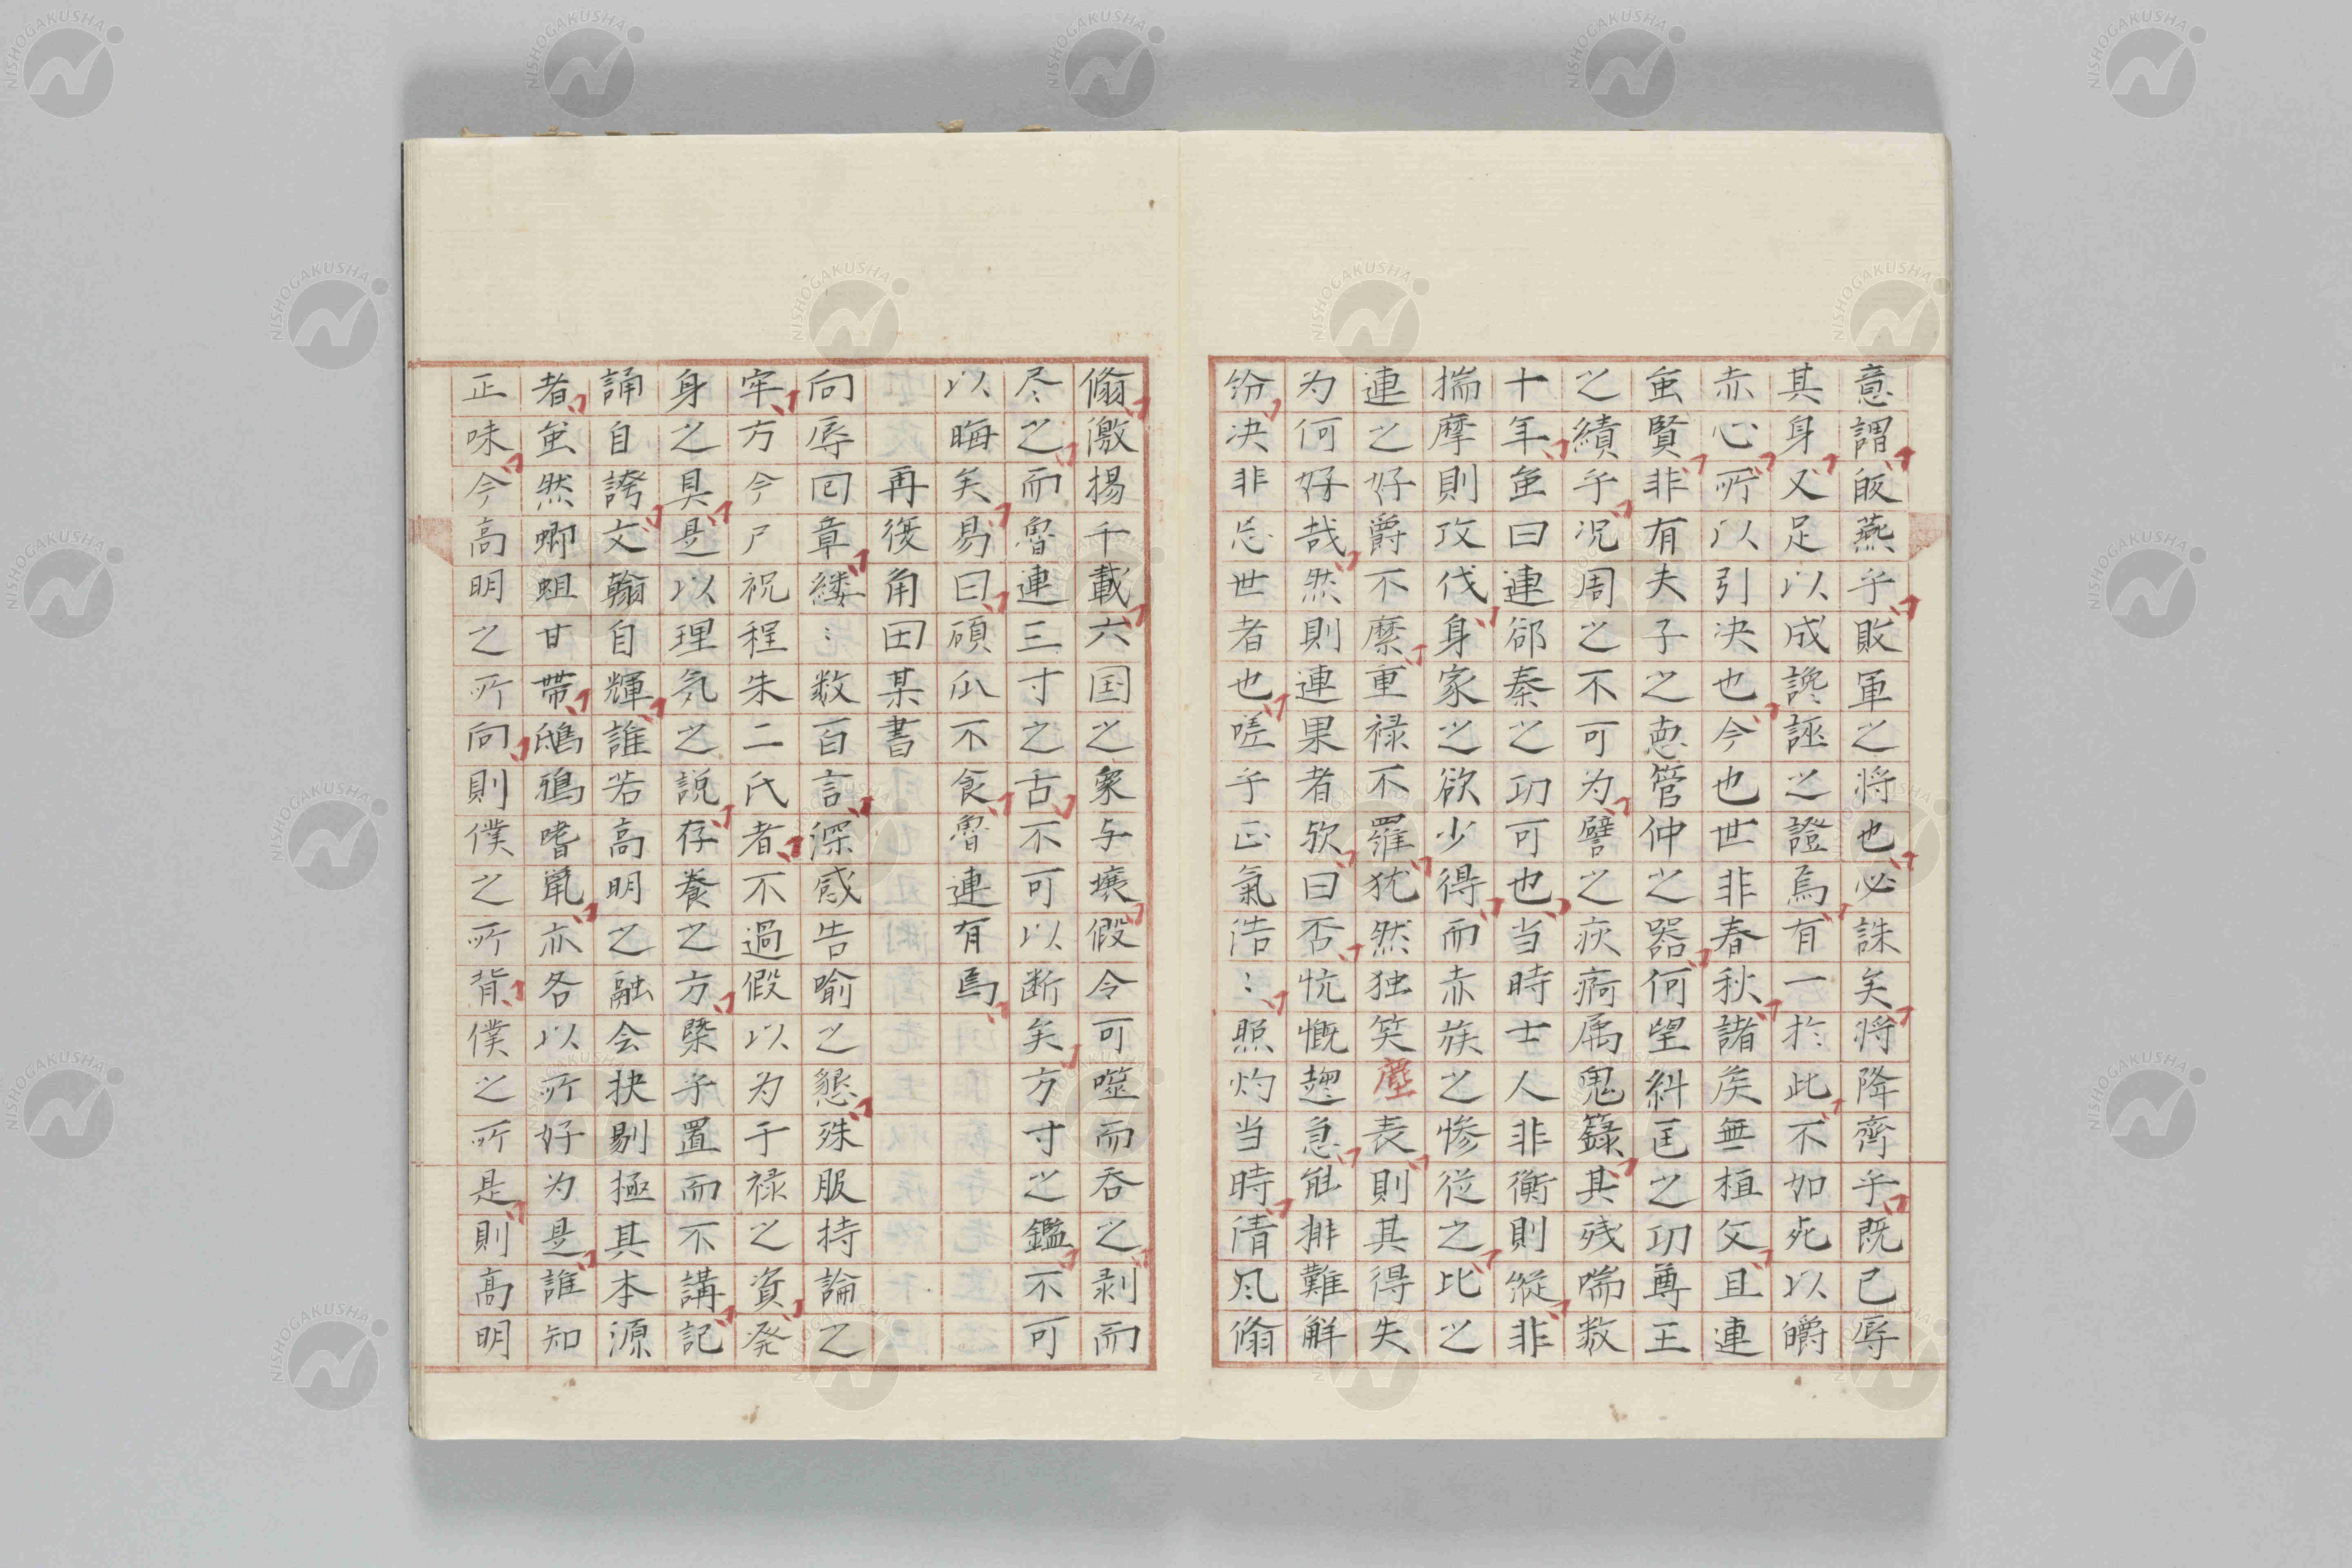 意謂皈燕乎敗軍之将也必誅矣将降齊乎既已辱
其身又足以成讒誣之證焉有一於此不如死以皭
赤心所以引决也今也世非春秋諸矦無桓文且連
虽賢非有夫子之悳管仲之器何望糾匡之功尊王
之績乎况周之不可为譬之疢痾属鬼籙其残喘数
十年虽曰連郤秦之功可也当時士人非衡則縱非
揣摩則攻伐身家之欲少得而赤族之惨従之比之
連之好爵不縻重禄不羅犹然独笑塵表則其得失
为何好哉然則連果者欤曰否忼慨趣急能排難解
纷决非忘世者也嗟乎正氣浩〻照灼当時清风翛
翛激揚千載六国之衆与壤假令可噬而吞之剥而
尽之而魯連三寸之舌不可以断矣方寸之鑑不可
以晦矣易曰碩瓜不食魯連有焉
再復角田某書
向辱回章縷〻数百言深感告喻之懇殊服持論之
牢方今尸祝程朱二氏者不過假以为干禄之資発
身之具是以理気之説存養之方槩乎置而不講記
誦自誇文翰自輝誰若高明之融会抉剔極其本源
者虽然蝍蛆甘帶鴟鴉嗜鼠亦各以所好为是誰知
正味今高明之所向則僕之所背僕之所是則高明
NISHOGAKUSHA